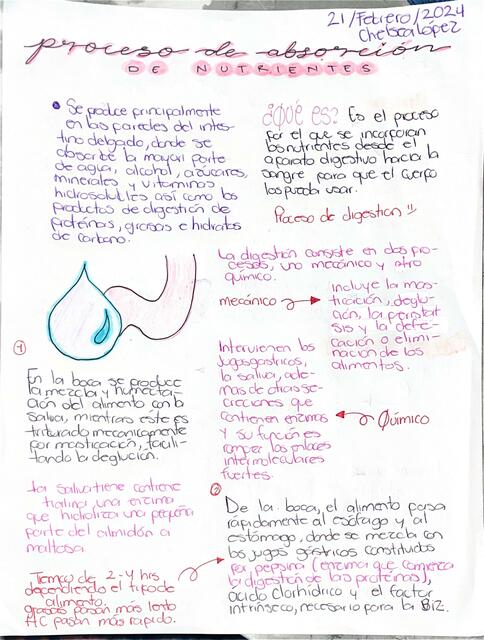 21/Febrero/2024
Chelsea López
proceso de absorción
DE NUTRIENTES
• Se produce principalmente
en las paredes del intes-
tino delgado, donde se
absorbe la mayor parte
de agua, alcohol, azúcares,
minerales y vitaminas
hidrosolubles así como los
productos de digestión de
proteínas, grasas e hidratos
de carbono.
¿Qué es? Es el proceso
por el que se incorporan
los nutrientes desde el
aparato digestivo hacia la
sangre para que el cuerpo
los pueda usar.
Proceso de digestion
La digestión consiste en dos pro-
cesos, uno mecánico y otro
químico.
mecánico → incluye la mas-
ticación, deglu-
ción, la peristal
sis y la defe-
cación o elimi-
nación de los
alimentos.
Intervienen los
jugos gastricos,
la saliva, ade-
mas de otras se-
creciones que
contienen enzimas
y su función es
romper los enlaces
intermoleculares
fuertes.
← Químico
1
En la boca se produce
la mezcla y humecta-
ción del alimento con la
saliva, mientras este es
triturado mecanicamente
por masticación, facili-
tando la deglución.
La saliva tiene contiene
tialina una enzima
que hidroliza una pequeña
parte del almidón a
maltosa.
Tiempo de 2-4 hrs,
dependiendo el tipo de
alimento.
grasas pasan más lento
HC pasan más rapido.
2
De la boca, el alimento pasa
rápidamente al esófago y al
estómago, donde se mezcla con
los jugos gástricos constituidos
por pepsina (enzima que comienza
la digestión de las proteinas),
ácido clorhídrico y el factor
intrínseco, necesario para la B12.